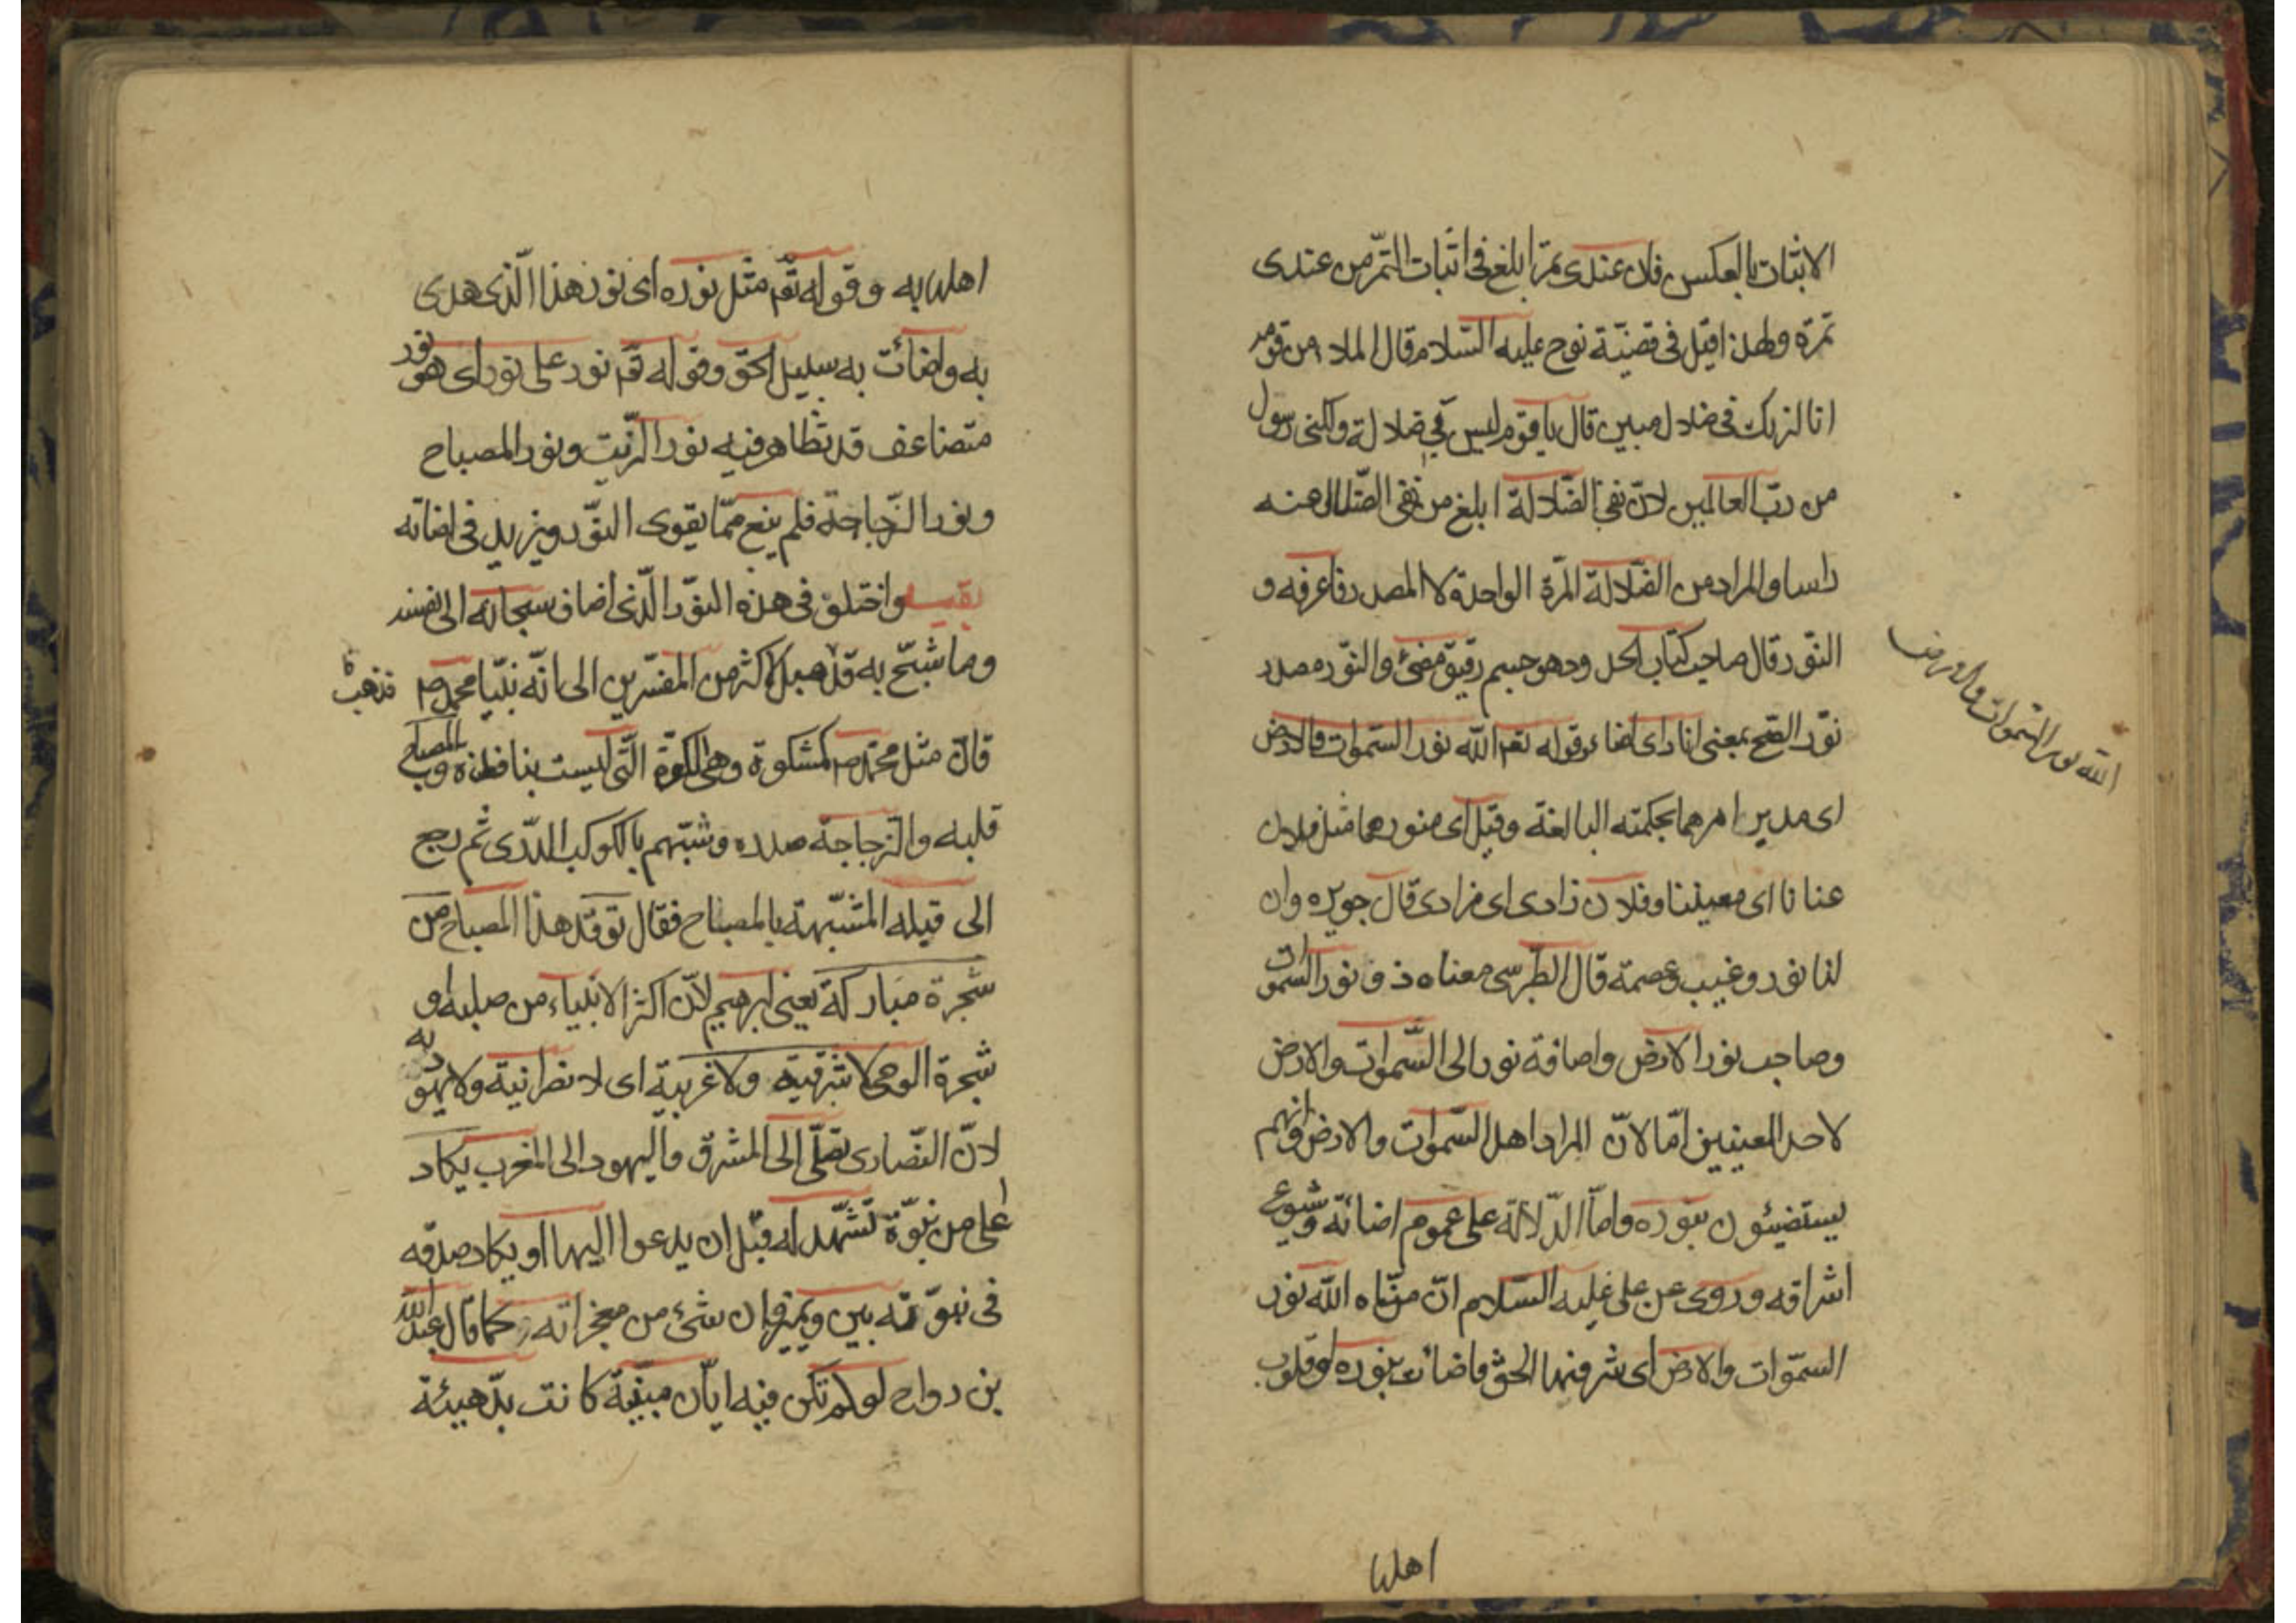 الاثبات بالعكس فلان عندى تمر ابلغ فى اثبات التمر من عندى
تمرة ولهذا قيل فى قضيّة نوح عليه السّلام قال الملاء من قومه
انا لنريك فى ضلال مبين قال يا قوم ليس بى ضلالة ولكنى رسول
من ربّ العالمين لانّ نفى الضّلالة ابلغ من نفى الضّلال عنه
راسا والمراد من الضّلالة المرّة الواحدة لا المصدر فاعرفه و
النّور قال صاحب كتاب الحدود هو جسم رقيق مضئ والنّور مصدر
نوّر الصّبح بمعنى انار اى اضاء وقوله تعم الله نور السّموات والارض
اى مدبر امرهما بحكمته البالغة وقيل اى منورهما مثل فلان
عنانا اى معيننا وفلان زادى اى مزادى قال جويره وان
لنا نور وغيب وعصمة قال الطّبرسى معناه ذو نور السّموات
وصاحب نور الارض واضافة نور الى السّموات والارض
لاحد المعنيين امّا لانّ المراد اهل السّموات والارض وانهم
يستضيئون بنوره وامّا الدّلالة على عموم اضائته وشيوع
اشراقه وروى عن على عليه السّلام انّ معناه الله نور
السّموات والارض اى شر فيها الحقّ فاضائت بنوره او قلوب
الله نور السّموات والارض
اهلها
اهلها به وقوله تعم مثل نوره اى نور هذا الّذى هدى
به واضائت به سبيل الحقّ وقوله تعم نور على نور اى هو نور
متضاعف قد تظاهر فيه نور الزّيت ونور المصباح
ونور الزّجاجة فلم يبق ممّا يقوى النّور ويزيد فى اضائته
واختلف فى هذه النّور الّذى اضاف سبحانه الى نفسه
وما شبّه به فذهب الاكثر من المفسّرين الى انّه نبيّنا محمّد ص
قال مثل محمّد ص كمشكوة وهى الكوّة الّتى ليست بنافذة والمصباح
قلبه والزجاجة صدره وشبّهه بالكوكب الدّرى ثم رجع
الى قلبه المشبّهة بالمصباح فقال توقد هذا المصباح من
شجرة مباركة يعنى ابرهيم لانّ اكثر الانبياء من صلبه او
شجرة الوحى لا شرقية ولا غربية اى لا نصرانية ولا يهوديه
لانّ النّصارى تصلّى الى المشرق واليهود الى المغرب يكاد
اعلى من نبوّة تشهد له قبل ان يدعوا اليها او يكاد صدقه
فى نبوّته بين ويميز وان بشئ من معجزاته كما قال عبد الله
بن رواح لو لم تكن فيه ايات مبيّنة كانت بدهيئة